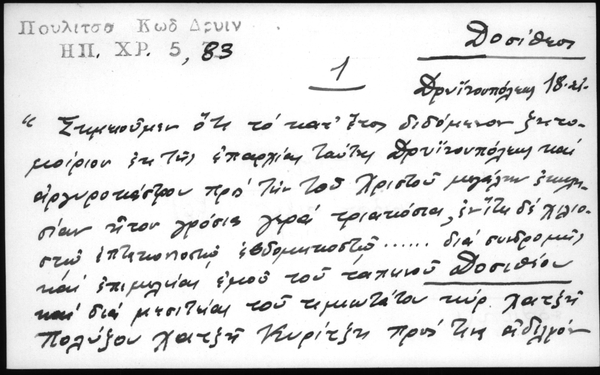 Πουλιτσα Κωδ Δρυιν
ΗΠ. ΧΡ. 5, 83
Δοσίθεος
1
Δρυϊνουπόλεως 18
"Σημειοῦμεν ὅτι τό κατ' ἔτος διδόμενον ζητο-
μοίριον ἐκ τῆς ἐπαρχίας ταύτης Δρυϊνουπόλεως καί
ἀργυροκάστρου πρό τήν τοῦ Χριστοῦ μεγάλην ἐκκλη-
σίαν ἦτον γρόσια γερά τριακόσια, ἐν ἔτει δέ χιλιο-
στῷ ἑπτακοσιοστῷ ἑβδομηκοστῷ ...... διά συνδρομῆς
καί ἐπιμελείας ἐμοῦ τοῦ ταπεινοῦ Δοσιθέου
καί διά μεσιτείας τοῦ τιμιωτάτου κύρ χατζῆ
Πολύζου χατζῆ Κυρίτζη πρός τήν ἀδελφόν